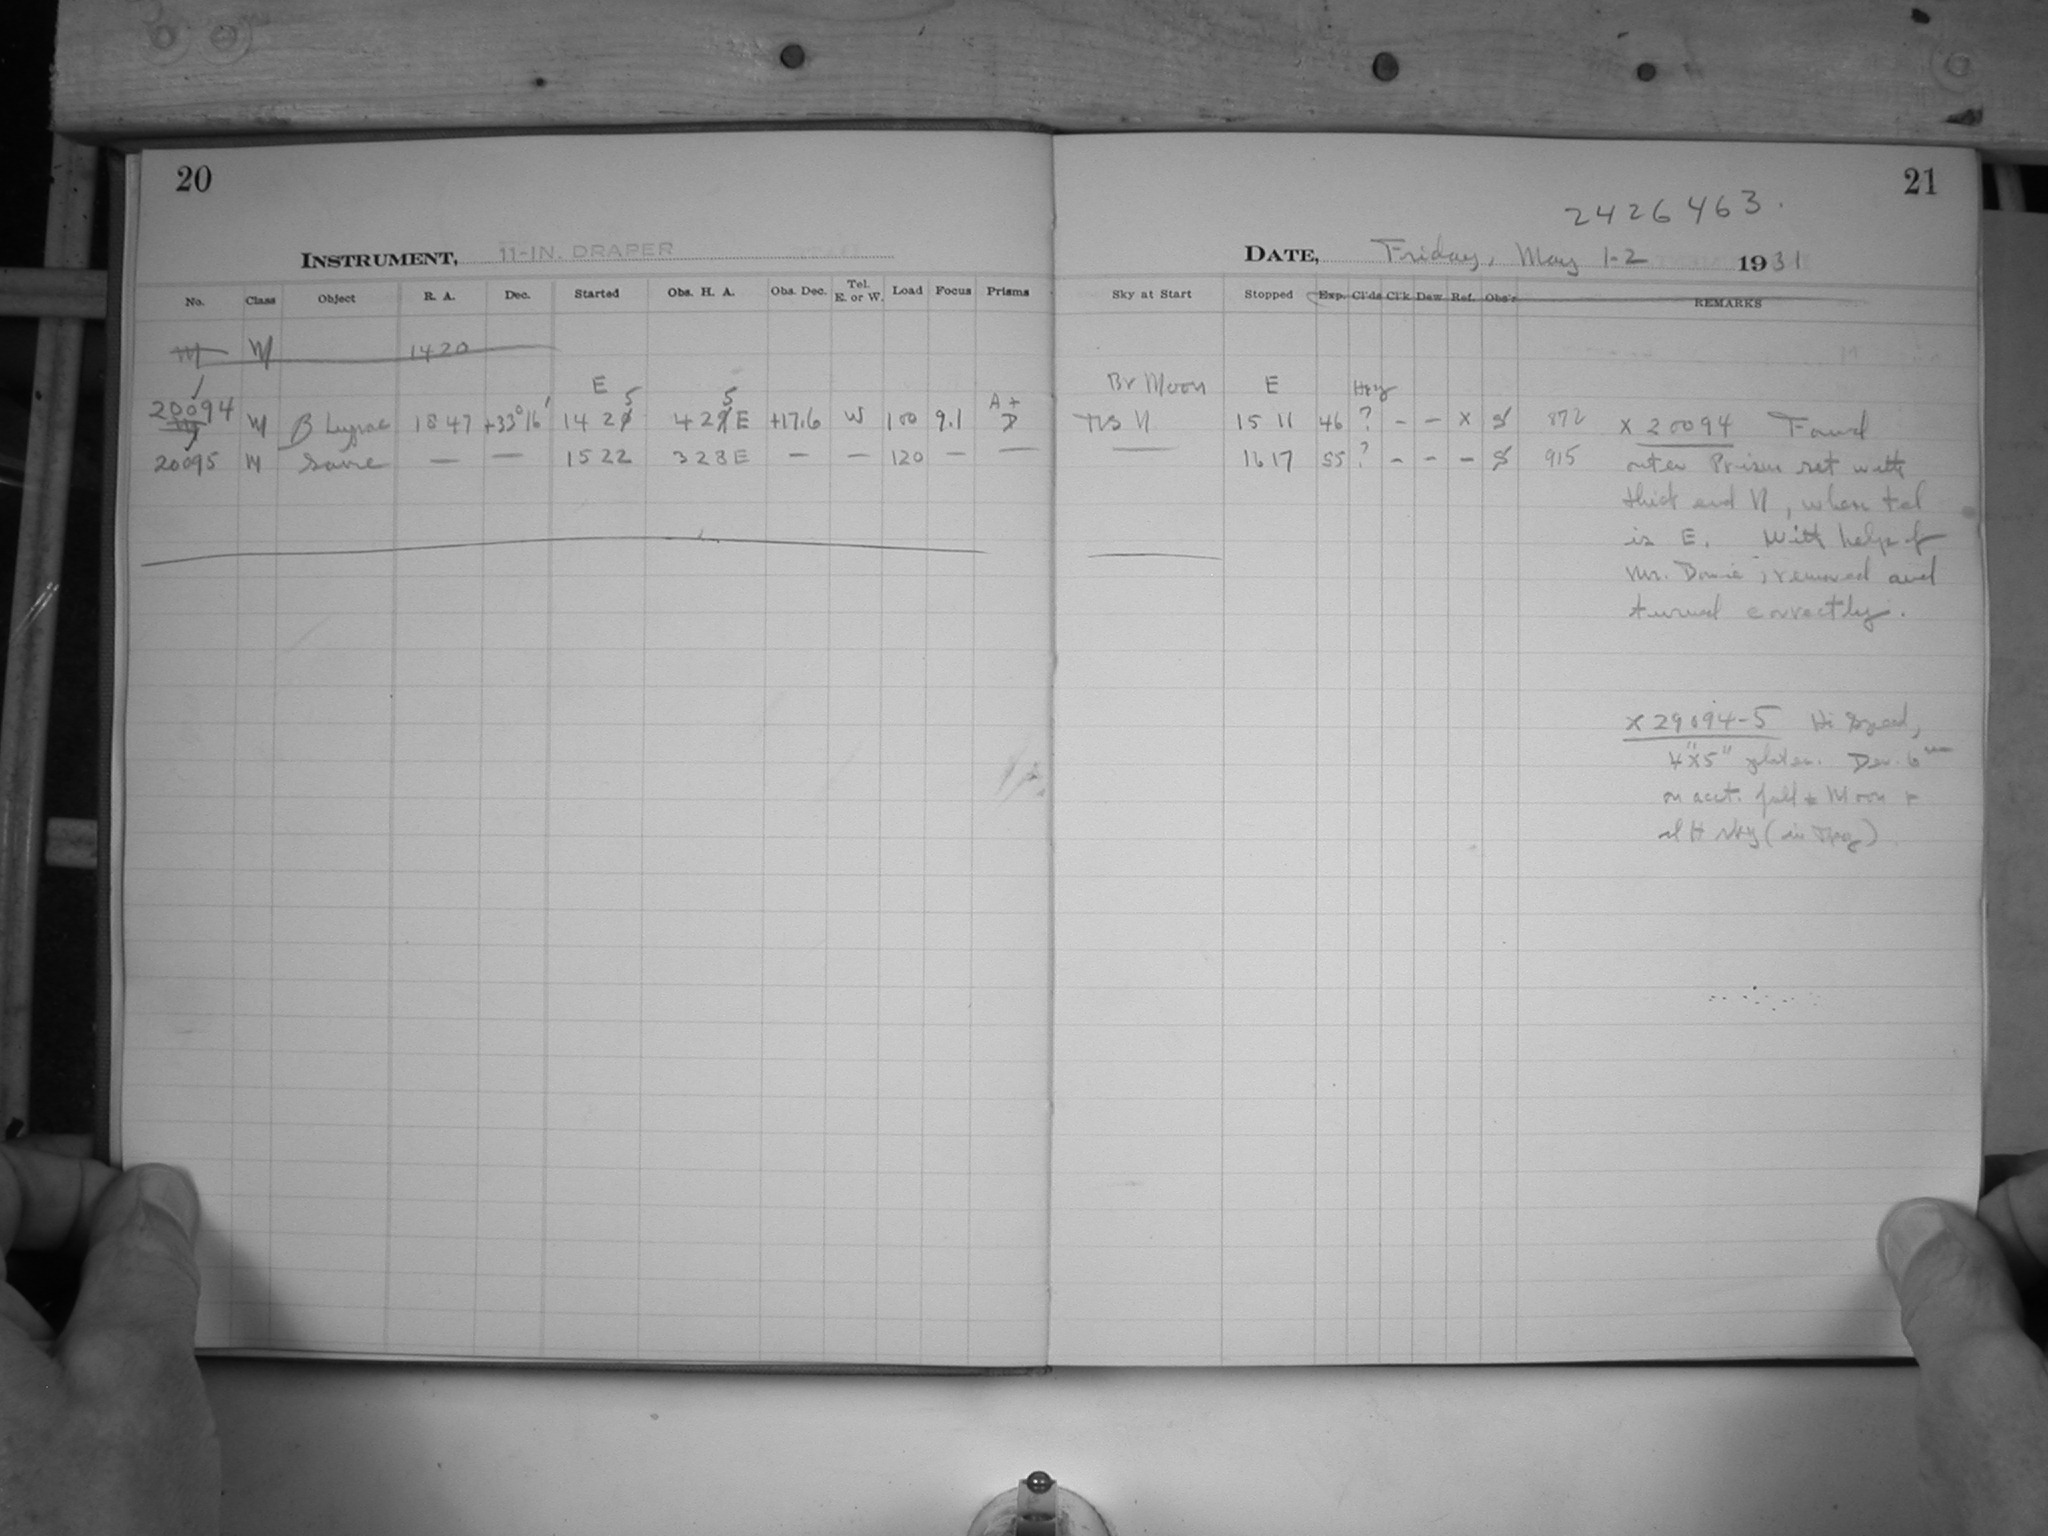 20
21
2426463.
INSTRUMENT, 11-IN. DRAPER
DATE, Friday, May 1-2 1931
No. Class Object R. A. Dec. Started Obs. H. A. Obs. Dec. Tel. E. or W. Load Focus Prisms
Sky at Start Stopped Exp. Cl'ds Cl'k Dew Ref. Obs'r REMARKS
M 1420
E 5 5 A+ Br Moon E Hzy
20094 M β Lyrae 18 47 +33°16' 14 29 4 29 E +17.6 W 100 9.1 D
15 11 46 ? - - x S 872
20095 M Same — — 15 22 3 28 E — — 120 — —
— 16 17 55 ? - - - S 915
x 20094 Found
outer Prism set with
thick end N, when tel
is E. With help of
Mr. removed and
turned correctly.
x 29094-5 Hi Speed,
4"x5" plates. Dev. 6
on acct. full Moon
sky (in